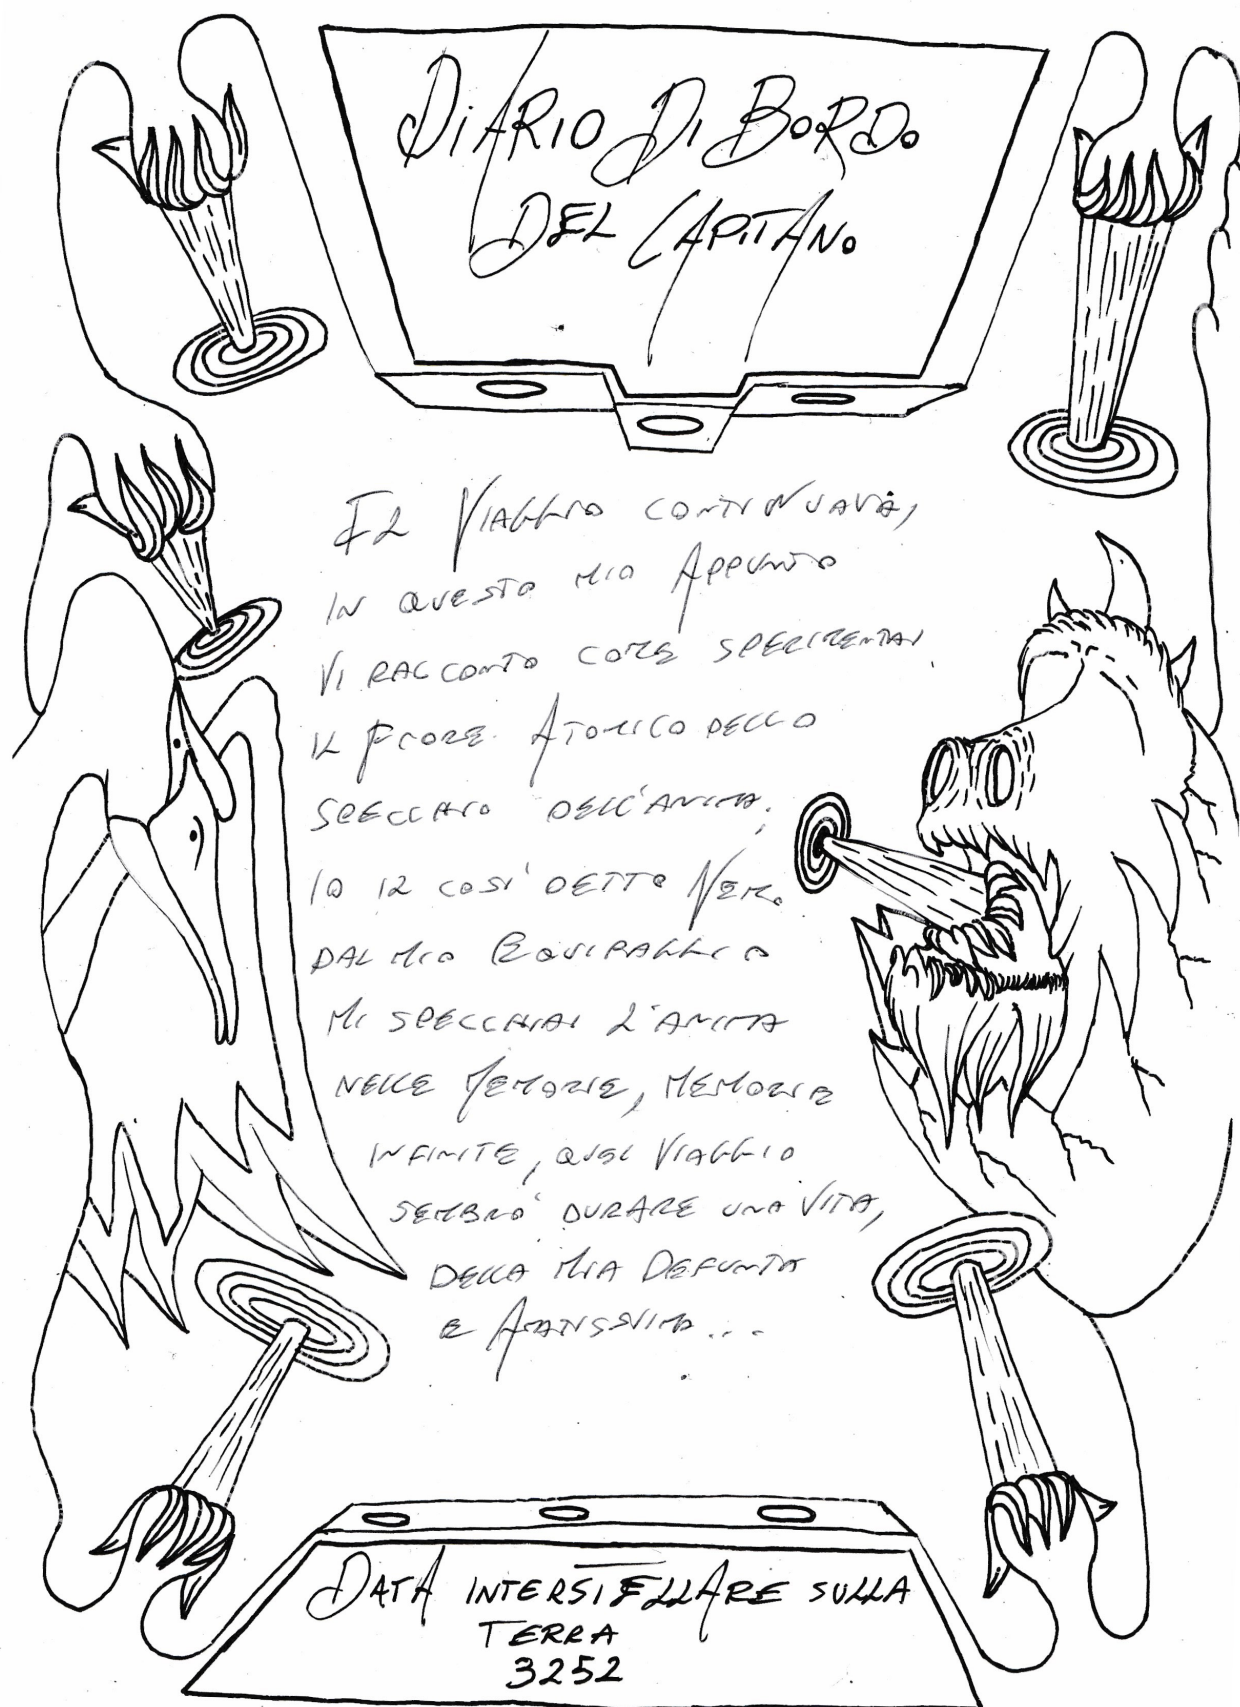 DiARIO Di BORDO
DEL CAPITANO
IL VIAGGIO CONTINUAVA,
IN QUESTO MIO APPUNTO
VI RACCONTO COME SPERIMENTAI
IL FIORE ATOMICO DELLO
SPECCHIO DELL'ANIMA.
IO IL COSI' DETTO NEMO
DAL MIO EQUIPAGGIO
MI SPECCHIAI L'ANIMA
NELLE MEMORIE, MEMORIE
INFINITE, QUEL VIAGGIO
SEMBRO' DURARE UNA VITA,
DELLA MIA DEFUNTA
E AMATISSIMA...
DATA INTERSTELLARE SULLA
TERRA
3252